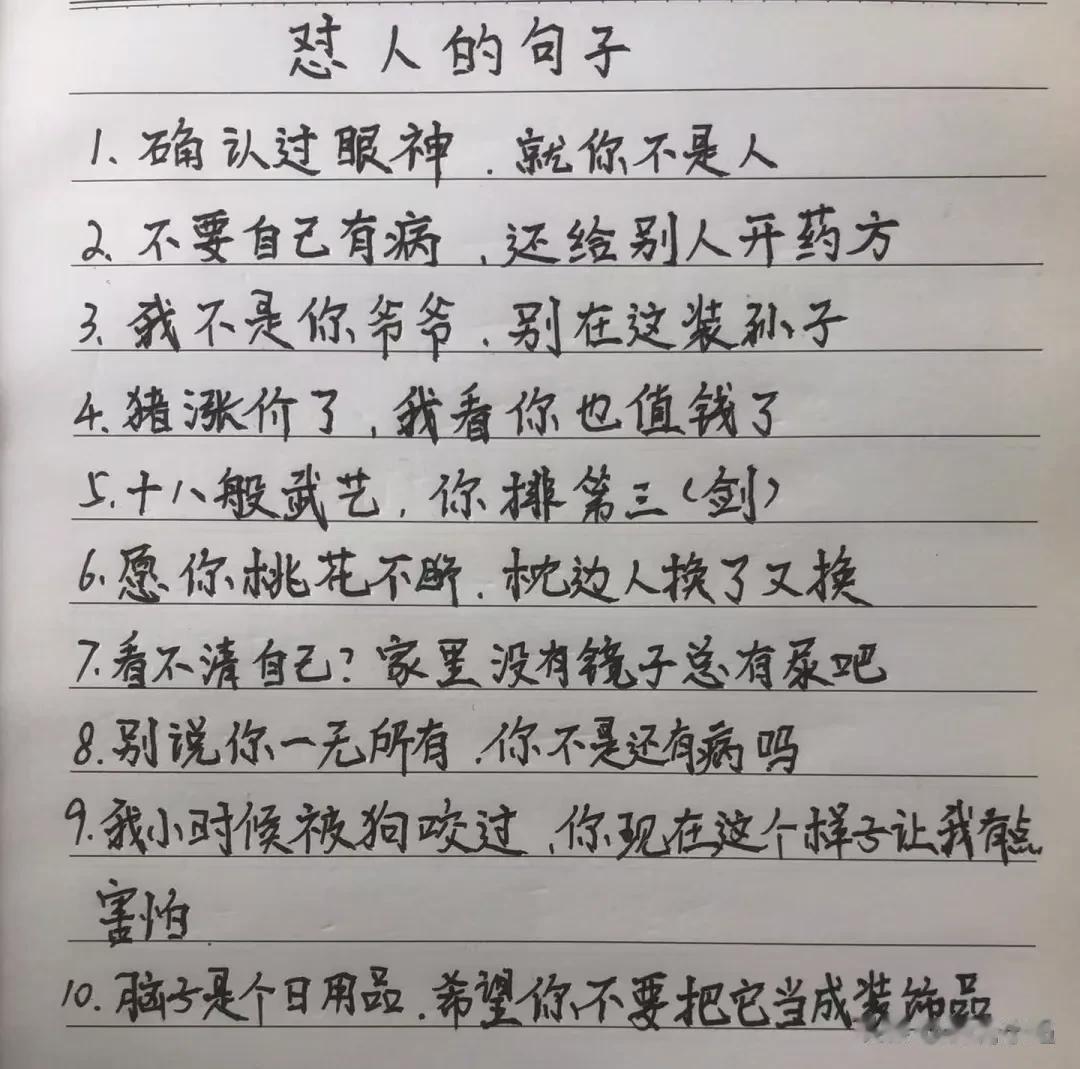 怼人的句子
1、确认过眼神，就你不是人
2、不要自己有病，还给别人开药方
3、我不是你爷爷，别在这装孙子
4、猪涨价了，我看你也值钱了
5、十八般武艺，你排第三（剑）
6、愿你桃花不断，枕边人换了又换
7、看不清自己？家里没有镜子总有尿吧
8、别说你一无所有，你不是还有病吗
9、我小时候被狗咬过，你现在这个样子让我有点
害怕
10、脑子是个日用品，希望你不要把它当成装饰品